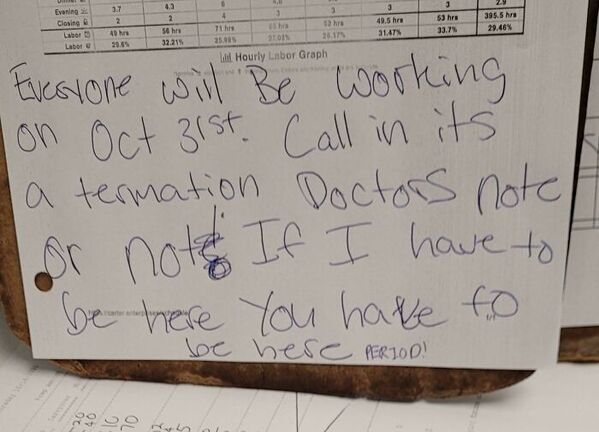 Evening 3.7 4.3
Closing 2 2 4 3 3 3 395.5 hrs
Labor 49 hrs 56 hrs 71 hrs 52 hrs 49.5 hrs 53 hrs
Labor 29.6% 32.21% 25.99% 27.03% 26.17% 31.47% 33.7% 29.46%
Hourly Labor Graph
Everyone will Be working
on Oct 31st. Call in its
a termation Doctors note
or not! If I have to
be here You have to
be here PERIOD!